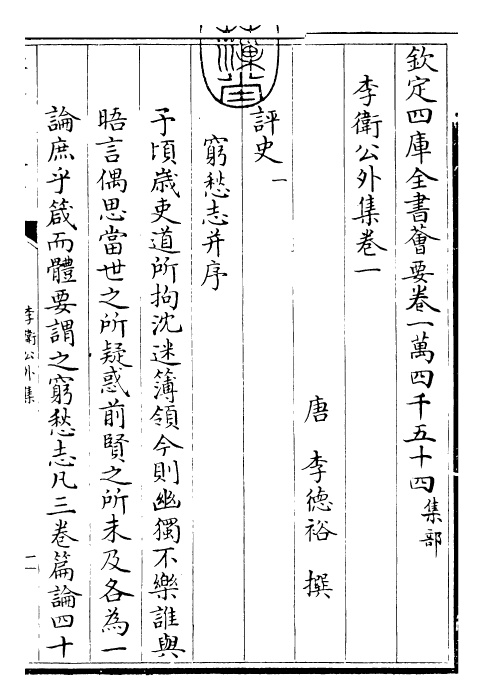 欽定四庫全書薈要卷一萬四千五十四集部
李衛公外集卷一
唐 李德裕 撰
評史一
窮愁志并序
予頃歲吏道所拘沈迷簿領今則幽獨不樂誰與
晤言偶思當世之所疑惑前賢之所未及各為一
論庶乎箴而體要謂之窮愁志凡三卷篇論四十
李衛公外集